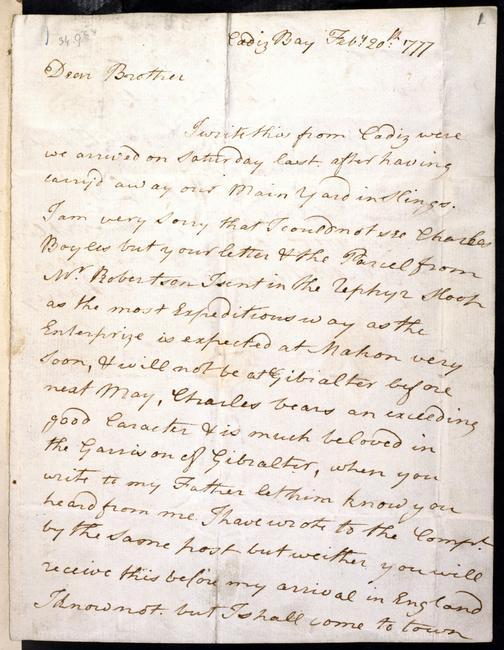 1
34.9
Cadiz Bay Feby. 20th. 1777
Dear Brother
I write this from Cadiz were
we arrived on Saturday last after having
carry'd away our Main Yard in Slings.
I am very sorry that I could not see Charles
Boyles but your letter & the Parcel from
Mr Robertson I sent in the Zephyr Sloop
as the most Expeditious way as the
Enterprize is expected at Mahon very
soon, & will not be at Gibralter before
next May, Charles bears an exceeding
good Caracter & is much beloved in
the Garrison of Gibralter, when you
write to my Father let him know you
heard from me. I have wrote to the Compt.
by the same post but weither you will
receive this before my arrival in England
I know not. but I shall come to town